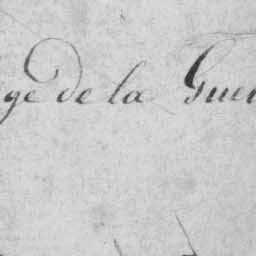 ge de la Guer